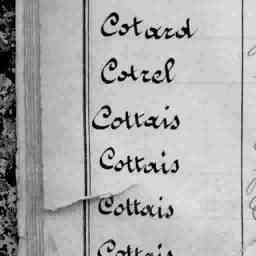 Cotard
Cotrel
Cottais
Cottais
Cottais
Cottais